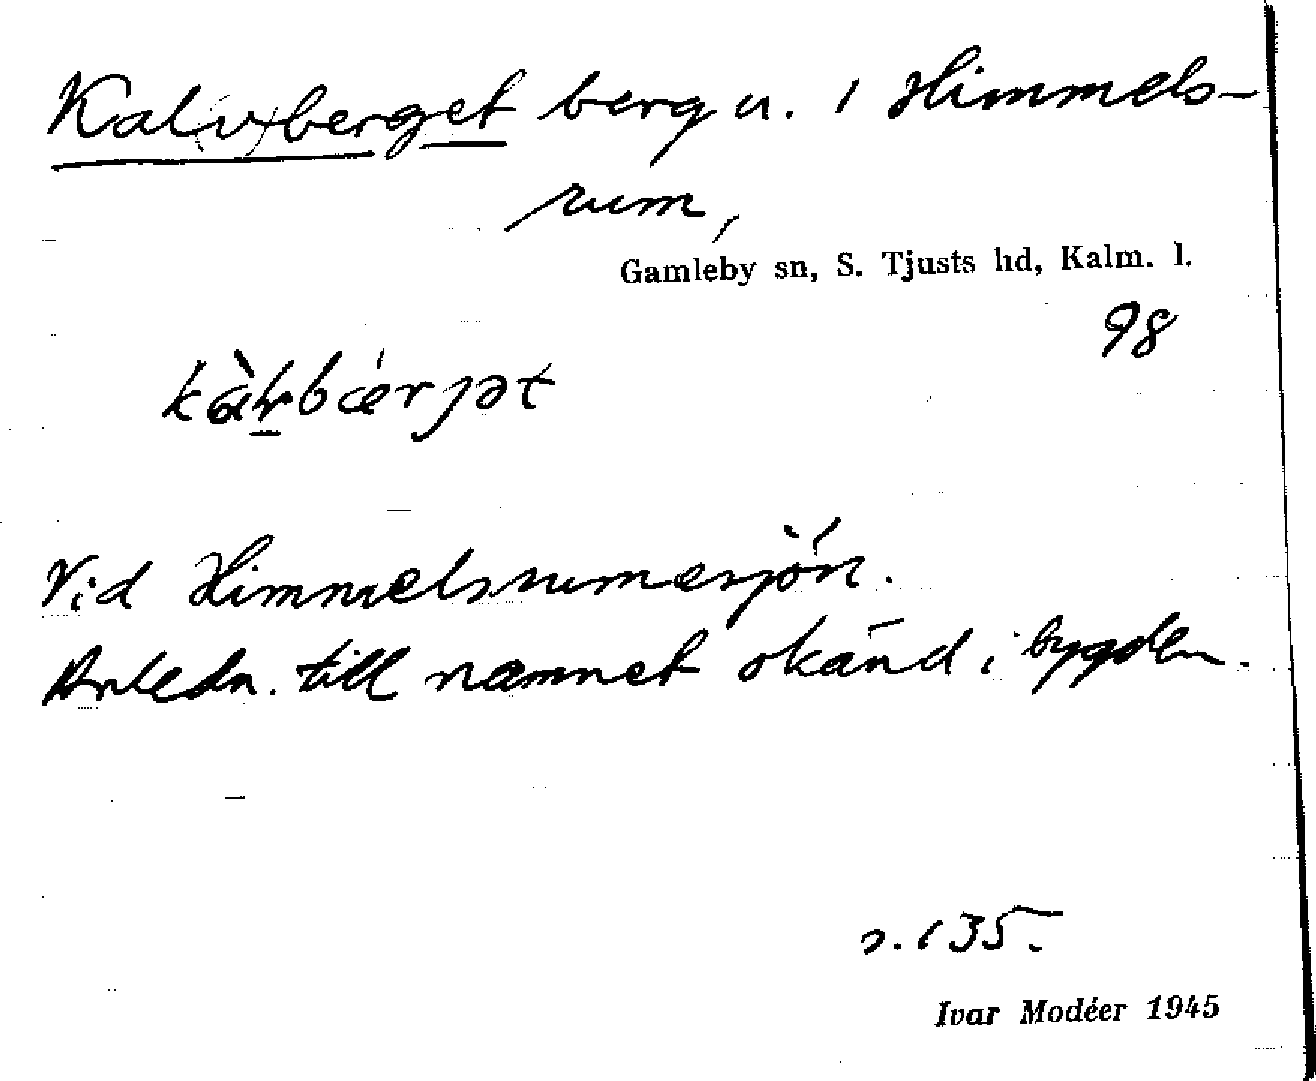 Kal(v)berget berg u. i Himmels-
rum,
Gamleby sn, S. Tjusts hd, Kalm. l.
98
Vid Himmelsrumersjön.
Anledn. till namnet okänd i bygden.
s. 135.
Ivar Modéer 1945